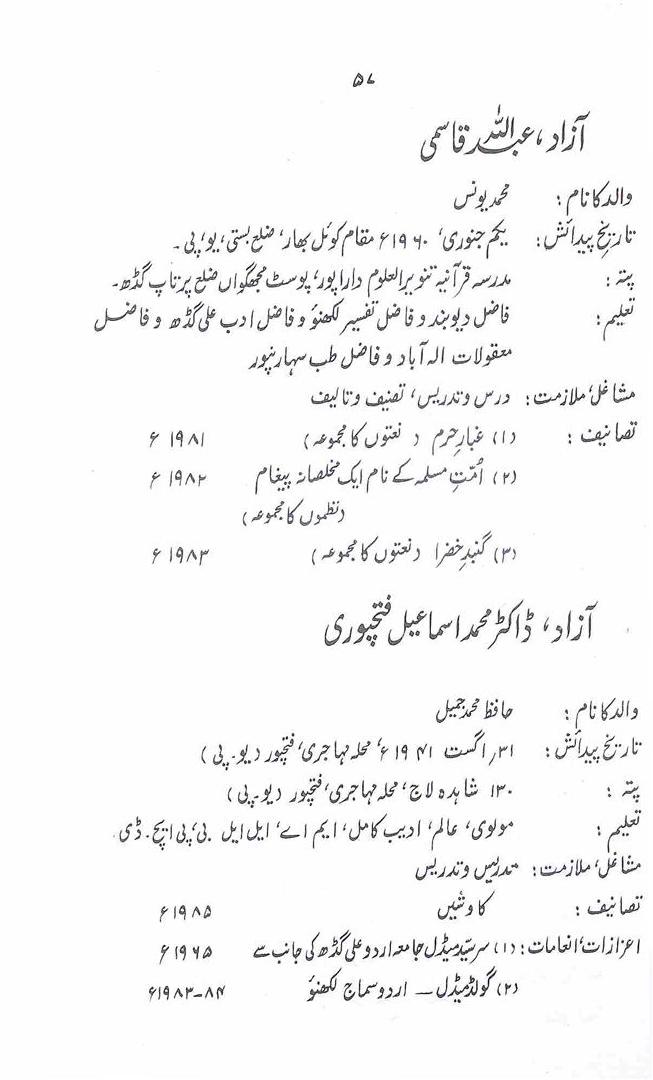 ۵۷
آزاد، عبداللہ قاسمی
والد کا نام : محمد یونس
تاریخ پیدائش : یکم جنوری، ۱۹۶۰ء مقام کوئل بھار، ضلع بستی، یو، پی۔
پتہ : مدرسہ قرآنیہ تنویر العلوم داراپور، پوسٹ مجھگواں ضلع پرتاپ گڈھ۔
تعلیم : فاضل دیوبند و فاضل تفسیر لکھنؤ و فاضل ادب علی گڈھ و فاضل
معقولات الہ آباد و فاضل طب سہارنپور
مشاغل، ملازمت : درس و تدریس، تصنیف و تالیف
تصانیف : (۱) غبارِ حرم (نعتوں کا مجموعہ) ۱۹۸۱ء
(۲) اُمّتِ مسلمہ کے نام ایک مخلصانہ پیغام ۱۹۸۲ء
(نظموں کا مجموعہ)
(۳) گنبدِ خضرا (نعتوں کا مجموعہ) ۱۹۸۳ء
آزاد، ڈاکٹر محمد اسماعیل فتحپوری
والد کا نام : حافظ محمد جمیل
تاریخ پیدائش : ۳۱/اگست ۱۹۴۱ء، محلہ مہاجری، فتحپور (یو۔پی)
پتہ : ۱۳۰ شاہدہ لاج، محلہ مہاجری، فتحپور (یو۔پی)
تعلیم : مولوی، عالم، ادیب کامل، ایم اے، ایل ایل بی، پی ایچ۔ڈی
مشاغل، ملازمت : تدریس و تدریس
تصانیف : کاوشیں ۱۹۸۵ء
اعزازات، انعامات : (۱) سرسیّد میڈل جامعہ اردو علی گڈھ کی جانب سے ۱۹۶۵ء
(۲) گولڈ میڈل — اردو سماج لکھنؤ ۸۴-۱۹۸۳ء